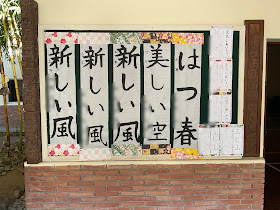 はつ春
美しい空
新しい風
新しい風
新しい風